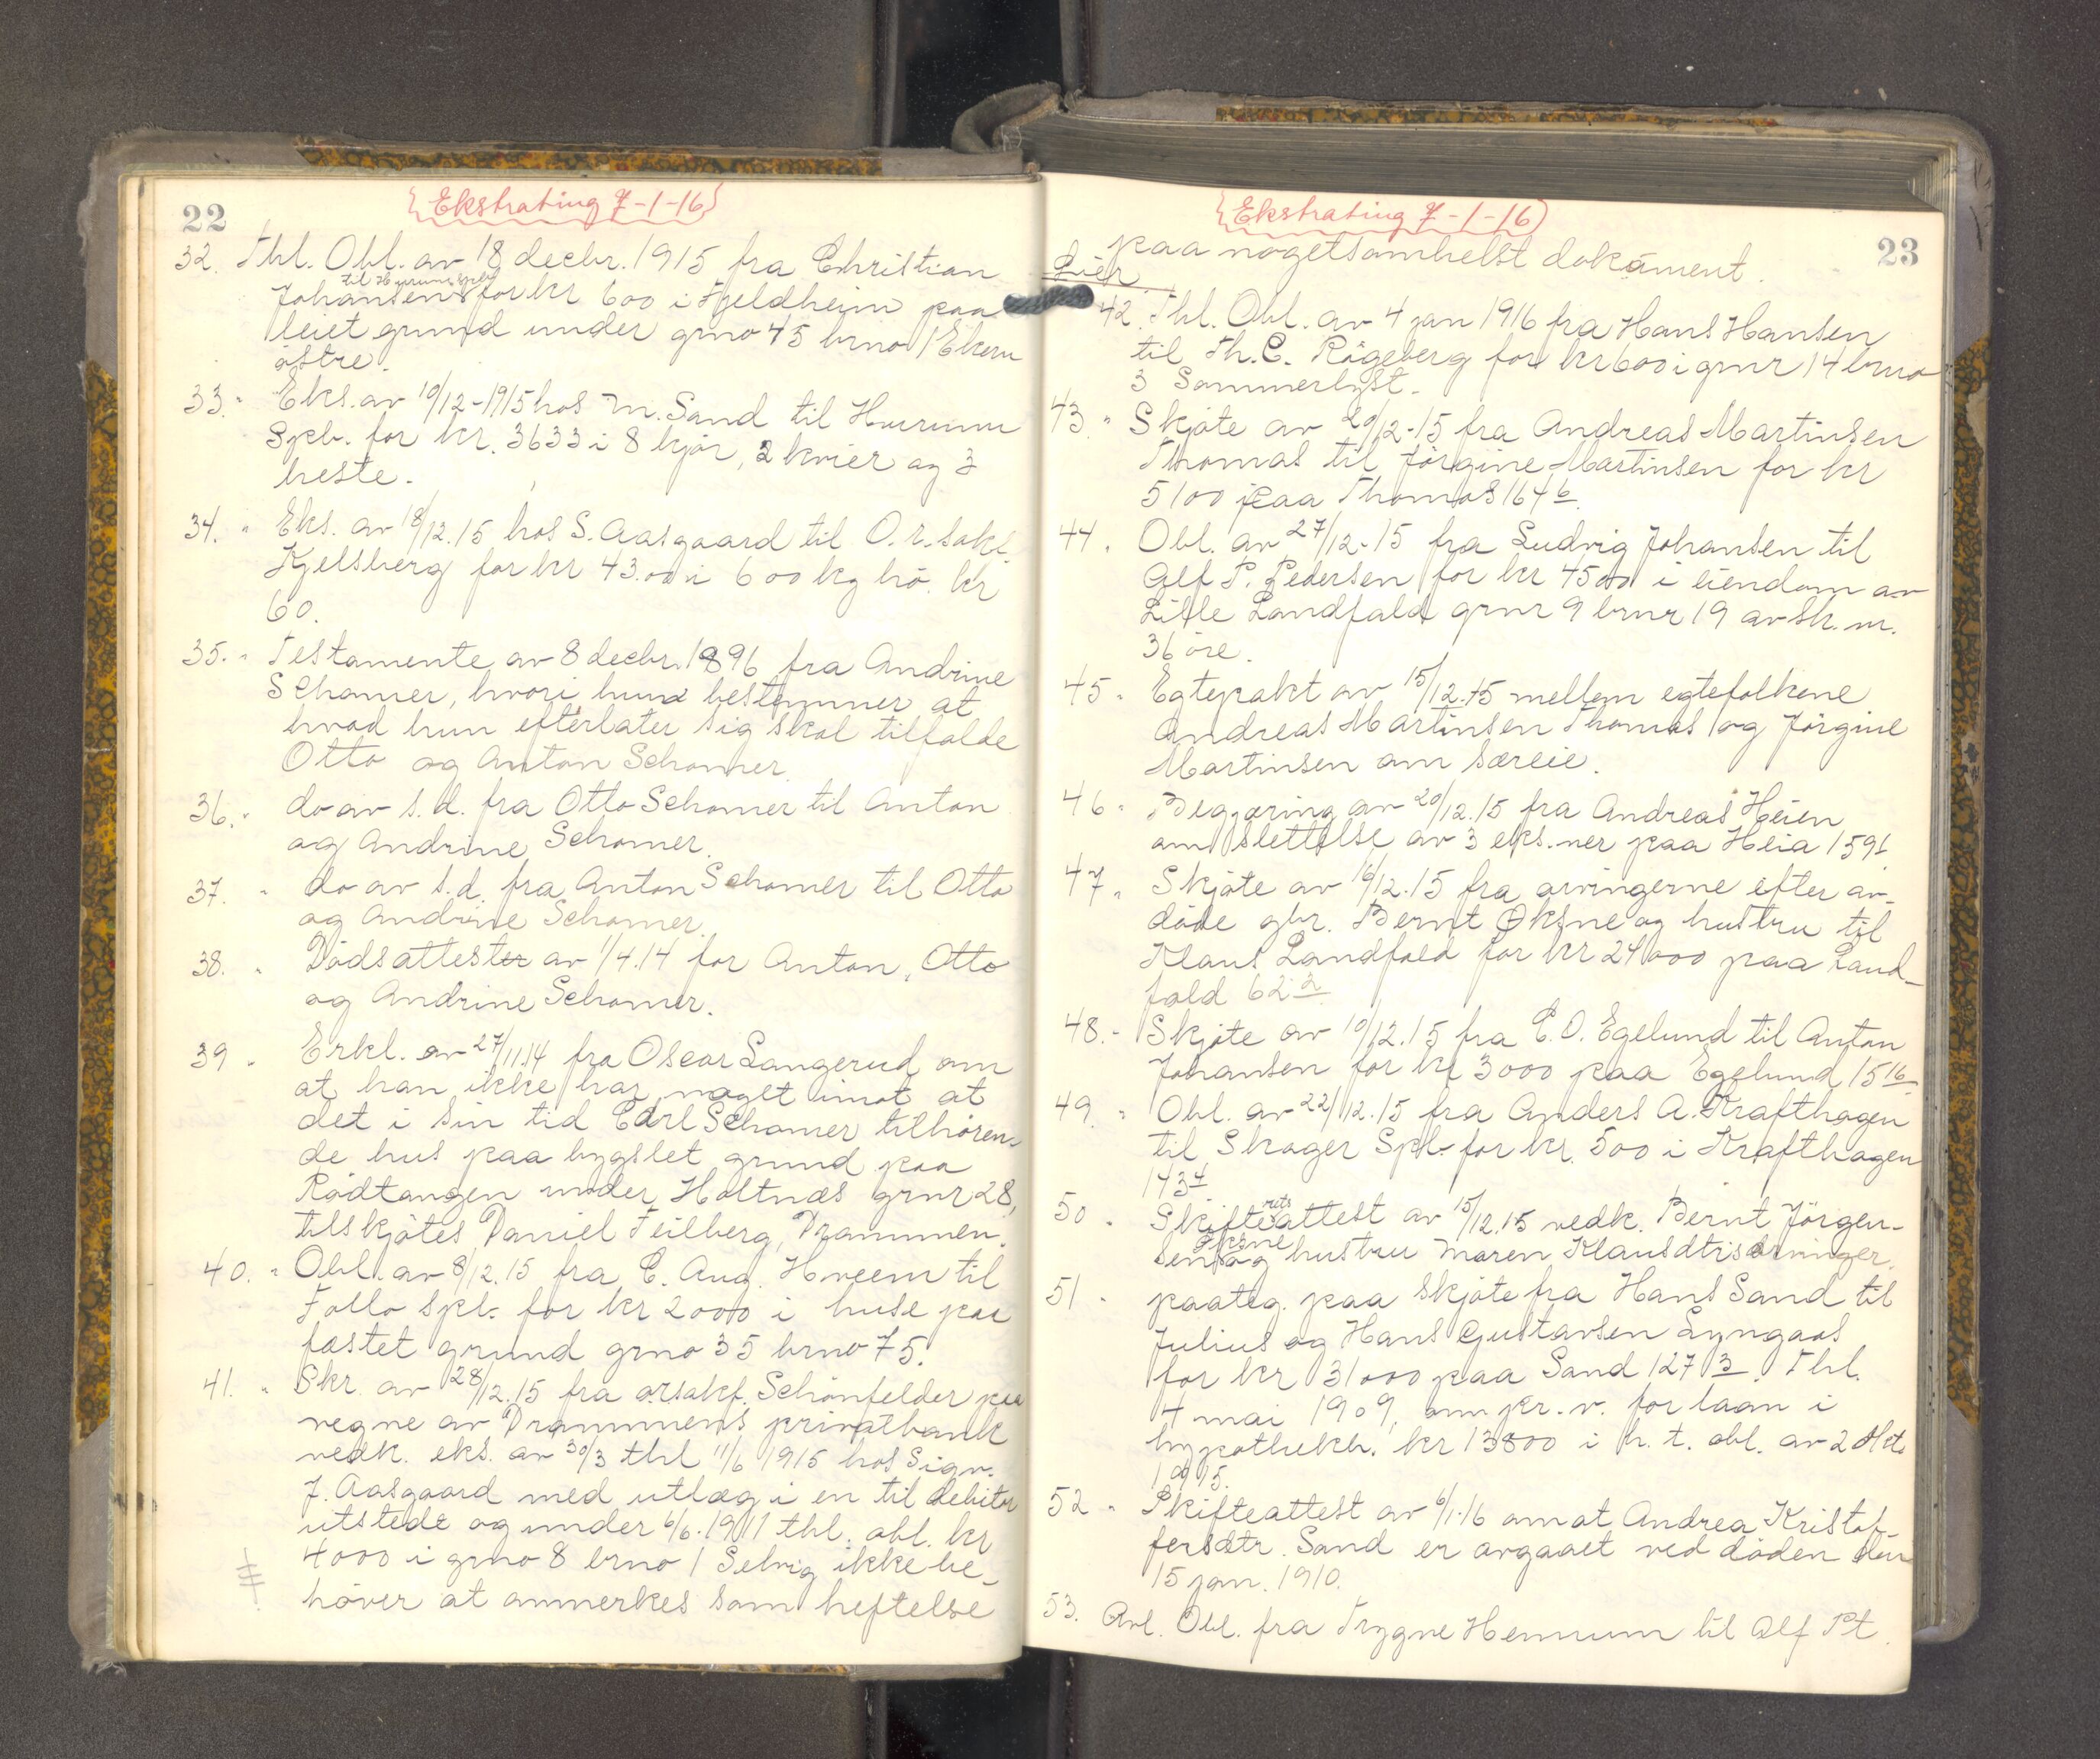 22
Ekstrating 7-1-16
32. Thl. Obl. av 18 decbr. 1915 fra Christian
til Hurums spb.
Johansen for kr 600 i Fjeldheim paa
leiet grund under grno 45 brno 1 Ekern
östre.
33. " Eks. av 10/12-1915 hos M. Sand til Hurum
Spb. for kr. 3633 i 8 kjör, 2 kvier og 3
heste.
34. " Eks. av 18/12.15 hos S. Aasgaard til O.r.sakf.
Kjelsberg for kr 43.00 i 600 kg hö. kr
60.
35. " Testamente av 8 decbr. 1896 fra Andrine
Schomer, hvori hun bestemmer at
hvad hun efterlater sig skal tilfalde
Otto og Anton Schomer.
36. " do av s.d. fra Otto Schomer til Anton
og Andrine Schomer.
37. " do av s.d. fra Anton Schomer til Otto
og Andrine Schomer.
38. " Dödsattester av 1/4.14 for Anton, Otto
og Andrine Schomer.
39 " Erkl. av 27/11.14 fra Oscar Langerud om
at han ikke har noget imot at
det i sin tid Carl Schomer tilhören-
de hus paa bygslet grund paa
Rödtangen under Holtnæs grnr 28,
tilskjötes Daniel Feilberg, Drammen.
40. " Obl. av 8/12.15 fra C. Aug. Hveem til
Follo Spb. for kr 2000 i huse paa
fæstet grund grno 35 brno 75.
41. " Skr. av 28/12.15 fra o.r.sakf. Schönfelder paa
vegne av Drammens privatbank
vedk. eks. av 30/3 thl 11/6 1915 hos Sigv.
J. Aasgaard med utlæg i en til debitor
utstedt og under 6/6.1911 thl. obl. kr
4000 i grno 8 brno 1 Selvig ikke be-
höver at anmerkes som heftelse
23
Ekstrating 7-1-16
paa nogetsomhelst dokument.
Lier.
42. Thl. Obl. av 4 jan 1916 fra Hans Hansen
til Th. C. Rögeberg for kr 600 i grnr 14 brno
3 Sommerlyst.
43. " Skjöte av 20/12-15 fra Andreas Martinsen
Thomas til Jörgine Martinsen for kr
5100 paa Thomas 164 6.
44. Obl. av 27/12-15 fra Ludvig Johansen til
Alf P. Pedersen for kr 4500 i eiendom av
Lille Landfald grnr 9 brnr 19 av sk. m.
36 öre.
45. " Egtepakt av 15/12.15 mellem egtefolkene
Andreas Martinsen Thomas og Jörgine
Martinsen om særeie.
46 " Begjæring av 20/12.15 fra Andreas Heien
om slettelse av 3 eks.ner paa Heia 159 1
47 " Skjöte av 16/12.15 fra arvingerne efter av-
döde gbr. Bernt Øksne og hustru til
Klaus Landfald for kr 24000 paa Land-
fald 62 2
48. " Skjöte av 10/12.15 fra C. O. Egelund til Anton
Johansen for kr 3000 paa Egelund 15 16
49. " Obl. av 22/12.15 fra Anders A. Krafthagen
til Skoger Spb. for kr. 500 i Krafthagen
143 4
50 " Skifterets attest av 15/12.15 vedk. Bernt Jörgen-
sen Øksne og hustru Maren Klausdtrs arvinger.
51 " paateg. paa skjöte fra Hans Sand til
Julius og Hans Gustavsen Lyngaas
for kr 31000 paa Sand 127 3. Thl.
4 mai 1909, om pr. v. for laan i
hypothekb. kr 13800 i h. t. obl. av 2 okt
1915.
52 " Skifteattest av 6/1.16 om at Andrea Kristof-
fersdtr. Sand er avgaaet ved döden den
15 jan. 1910.
53. Avl. Obl. fra Trygve Hennum til Alf Pt.